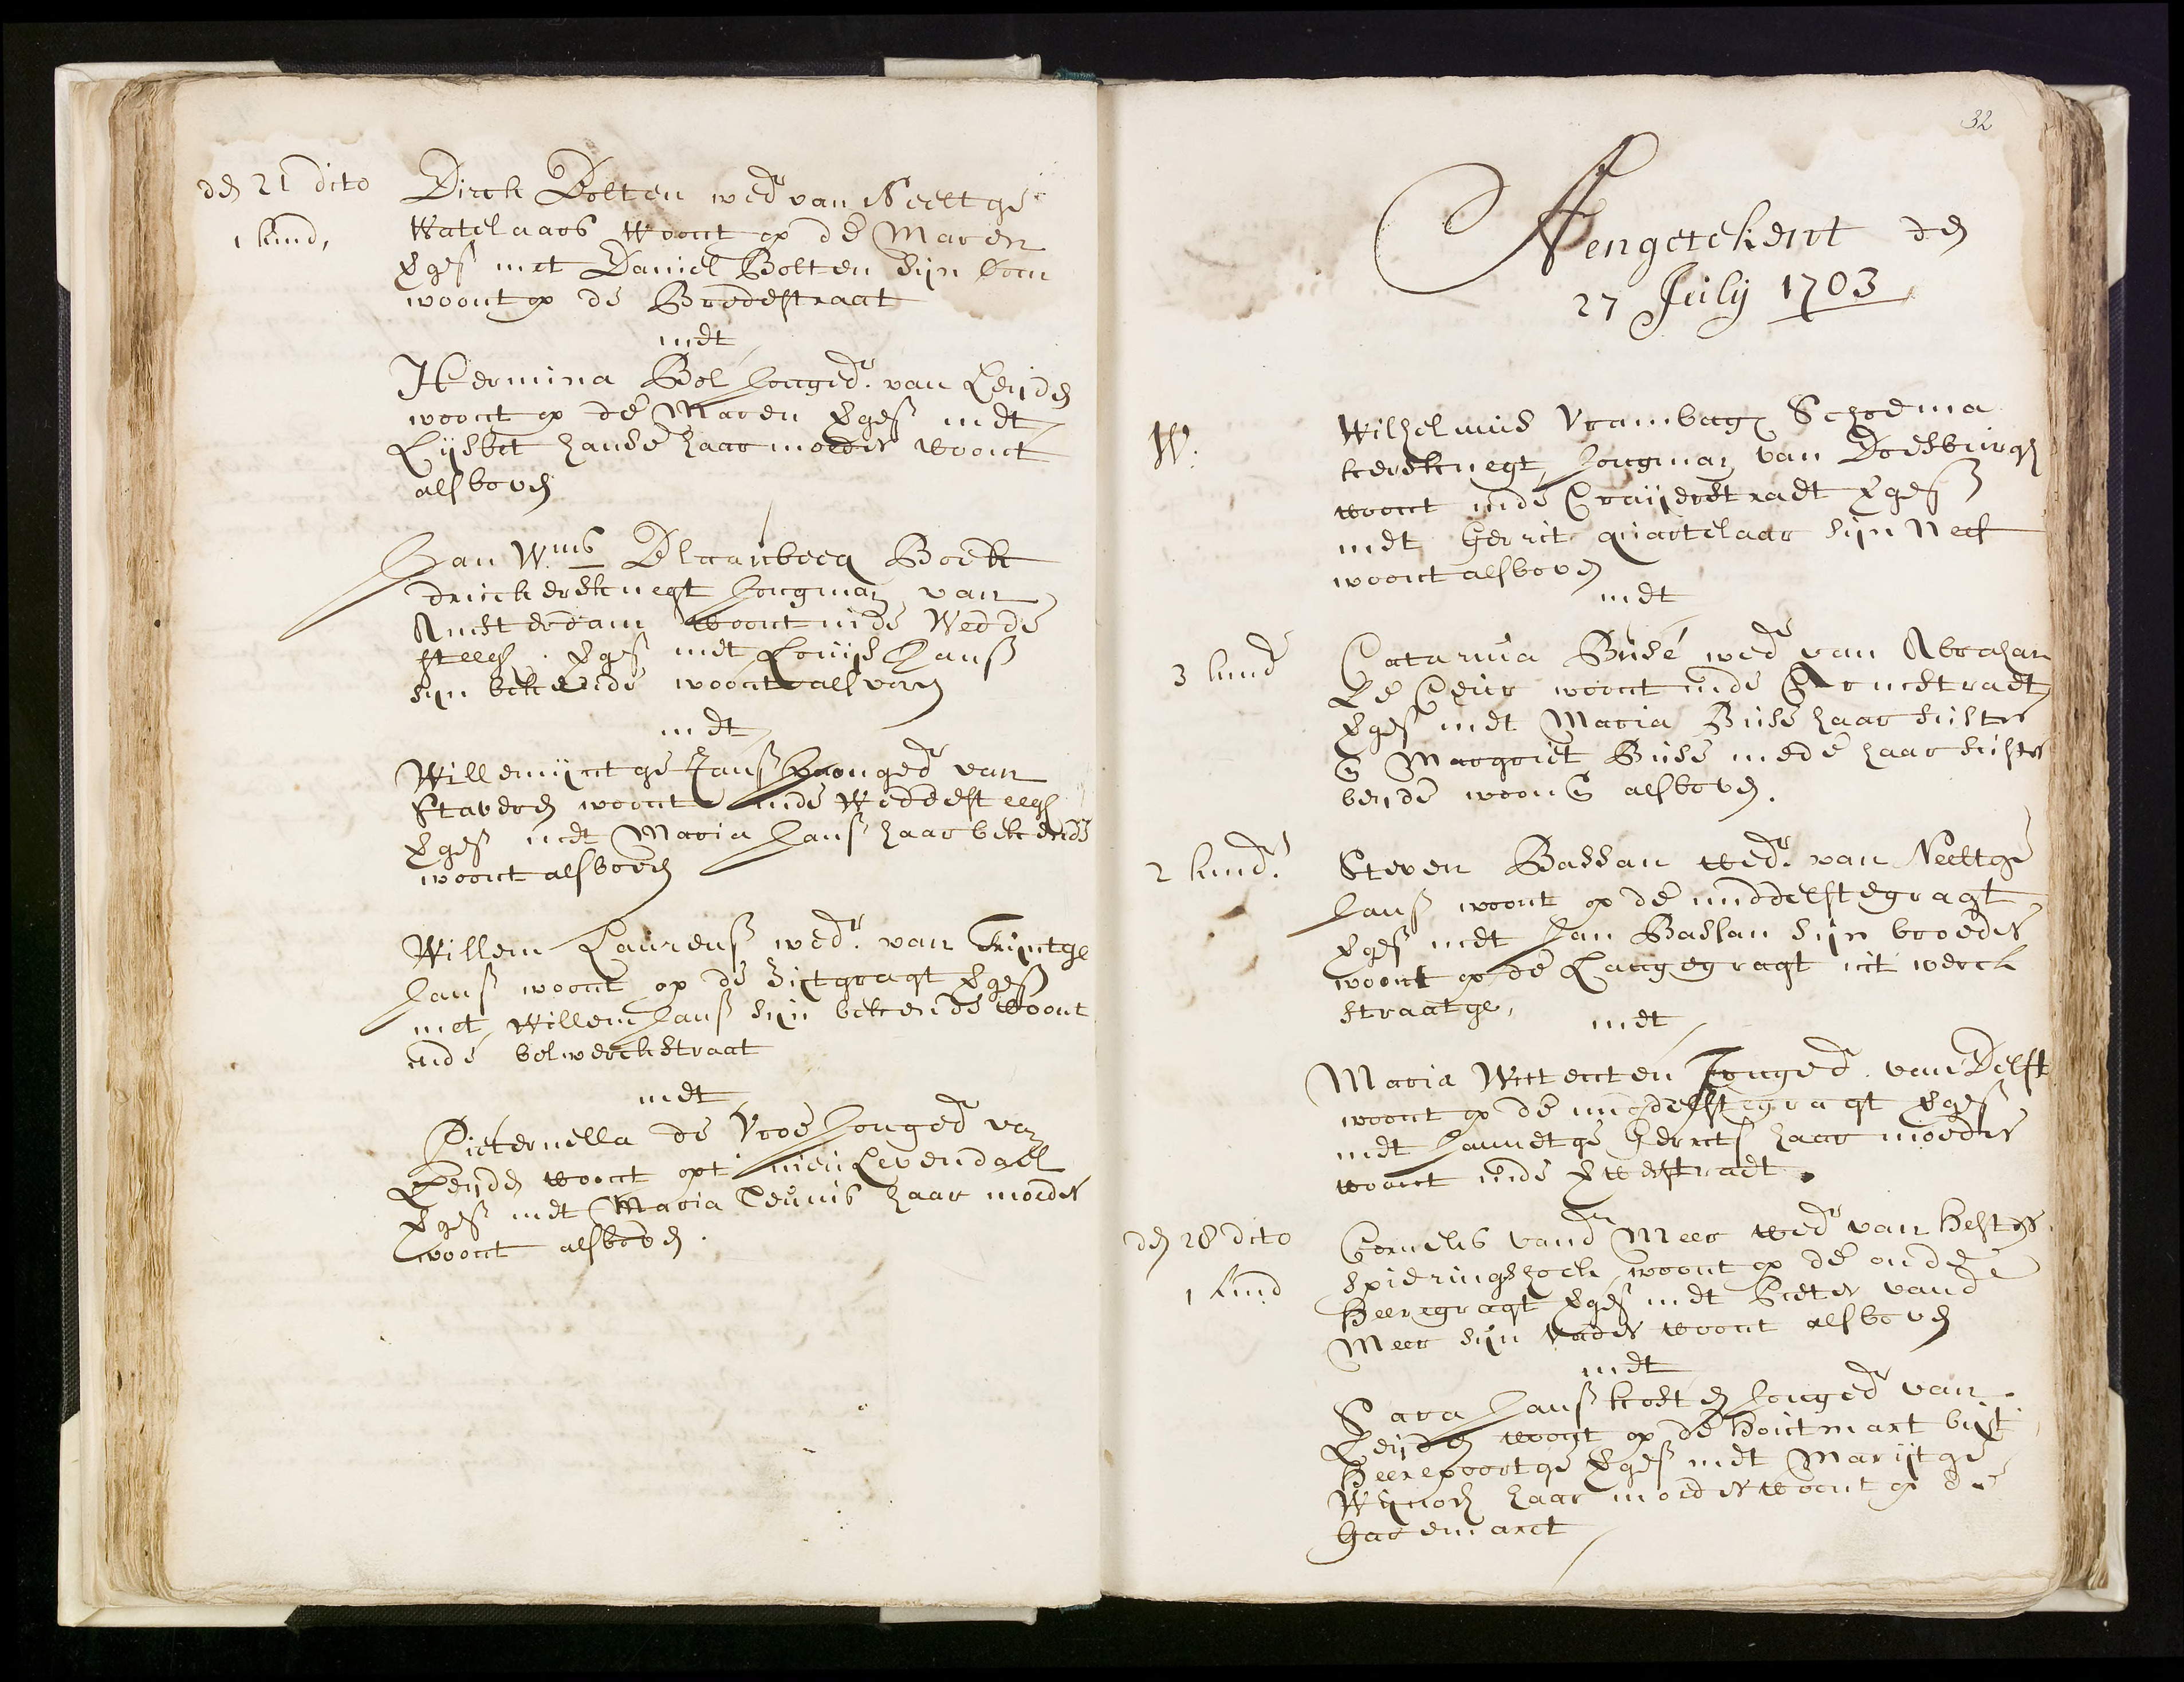 den 21 dito
1 kind,
Dirck Bolten wedr van Neeltge
Watelaars woont op de Maren
Vges met Daniel Bolten sijn oom
woont op de Breedestraat
met
Hermina Bol Jongedr. van Leijden
woont op de Maren Vges met
Lijsbet hanse haar moeder woont
als boven
Jan Wms Blaauboeq Boek
druckersknegt Jongman van
Amsterdam woont inde Wedde
steegh. Vges met Louijs Jans
sijn bekende woont als voren
met
Willemijntge Jans Jongedr van
Staveren woont inde Weddesteegh
Vges met Maria Jans haar bekende
woont als boven
Willem Laurens wedr. van Trijntge
Jans woont op de Zijtgragt Vges
met Willem Jans sijn bekende woont
inde bolwerckstraat
met
Pieternella de Vroe Jongedr van
Leijden woont opt nieu Levendael
Vges met Maria Teunis haar moeder
woont als boven.
32
Aengetekent den
27 Julij 1703
W.
Wilhelmus Vrambagh Schoema
kersknegt, Jongman van Doesburgh
woont inde Craijerstraet Vges
met Gerrit quartelaar sijn Neef
woont als boven
met
3 kindr
Catarina Busé wede van Abraham
Le Cleur woont inde Groenstraet
Vges met Maria Busé haar suster
en Margriet Busé mede haar suster
beijde woonen als boven.
2 kindr.
Steven Bassan wedr. van Neeltge
Jans woont op de middelstegragt
Vges met Jan Bassan sijn broeder
woont op de Langegragt int werck
straatge,
met
Maria Wittenten Jongedr. van Delft
woont op de middelstegragt Vges
met Jannetge Gerrits haar moeder
woont inde Verwestraet.
den 28 dito
1 kind
Cornelis vandr Meer wedr van Hester
Spieringshoek, woont op de oude
Heeregragt Vges met Pieter vandr
Meer sijn Vader woont als boven
met
Sara Jans kosten Jongedr van
Leijden woont op de Houtmart bijt
Heerepoortge Vges met Marijtge
Wijnoch haar moeder woont op de
Garemarct